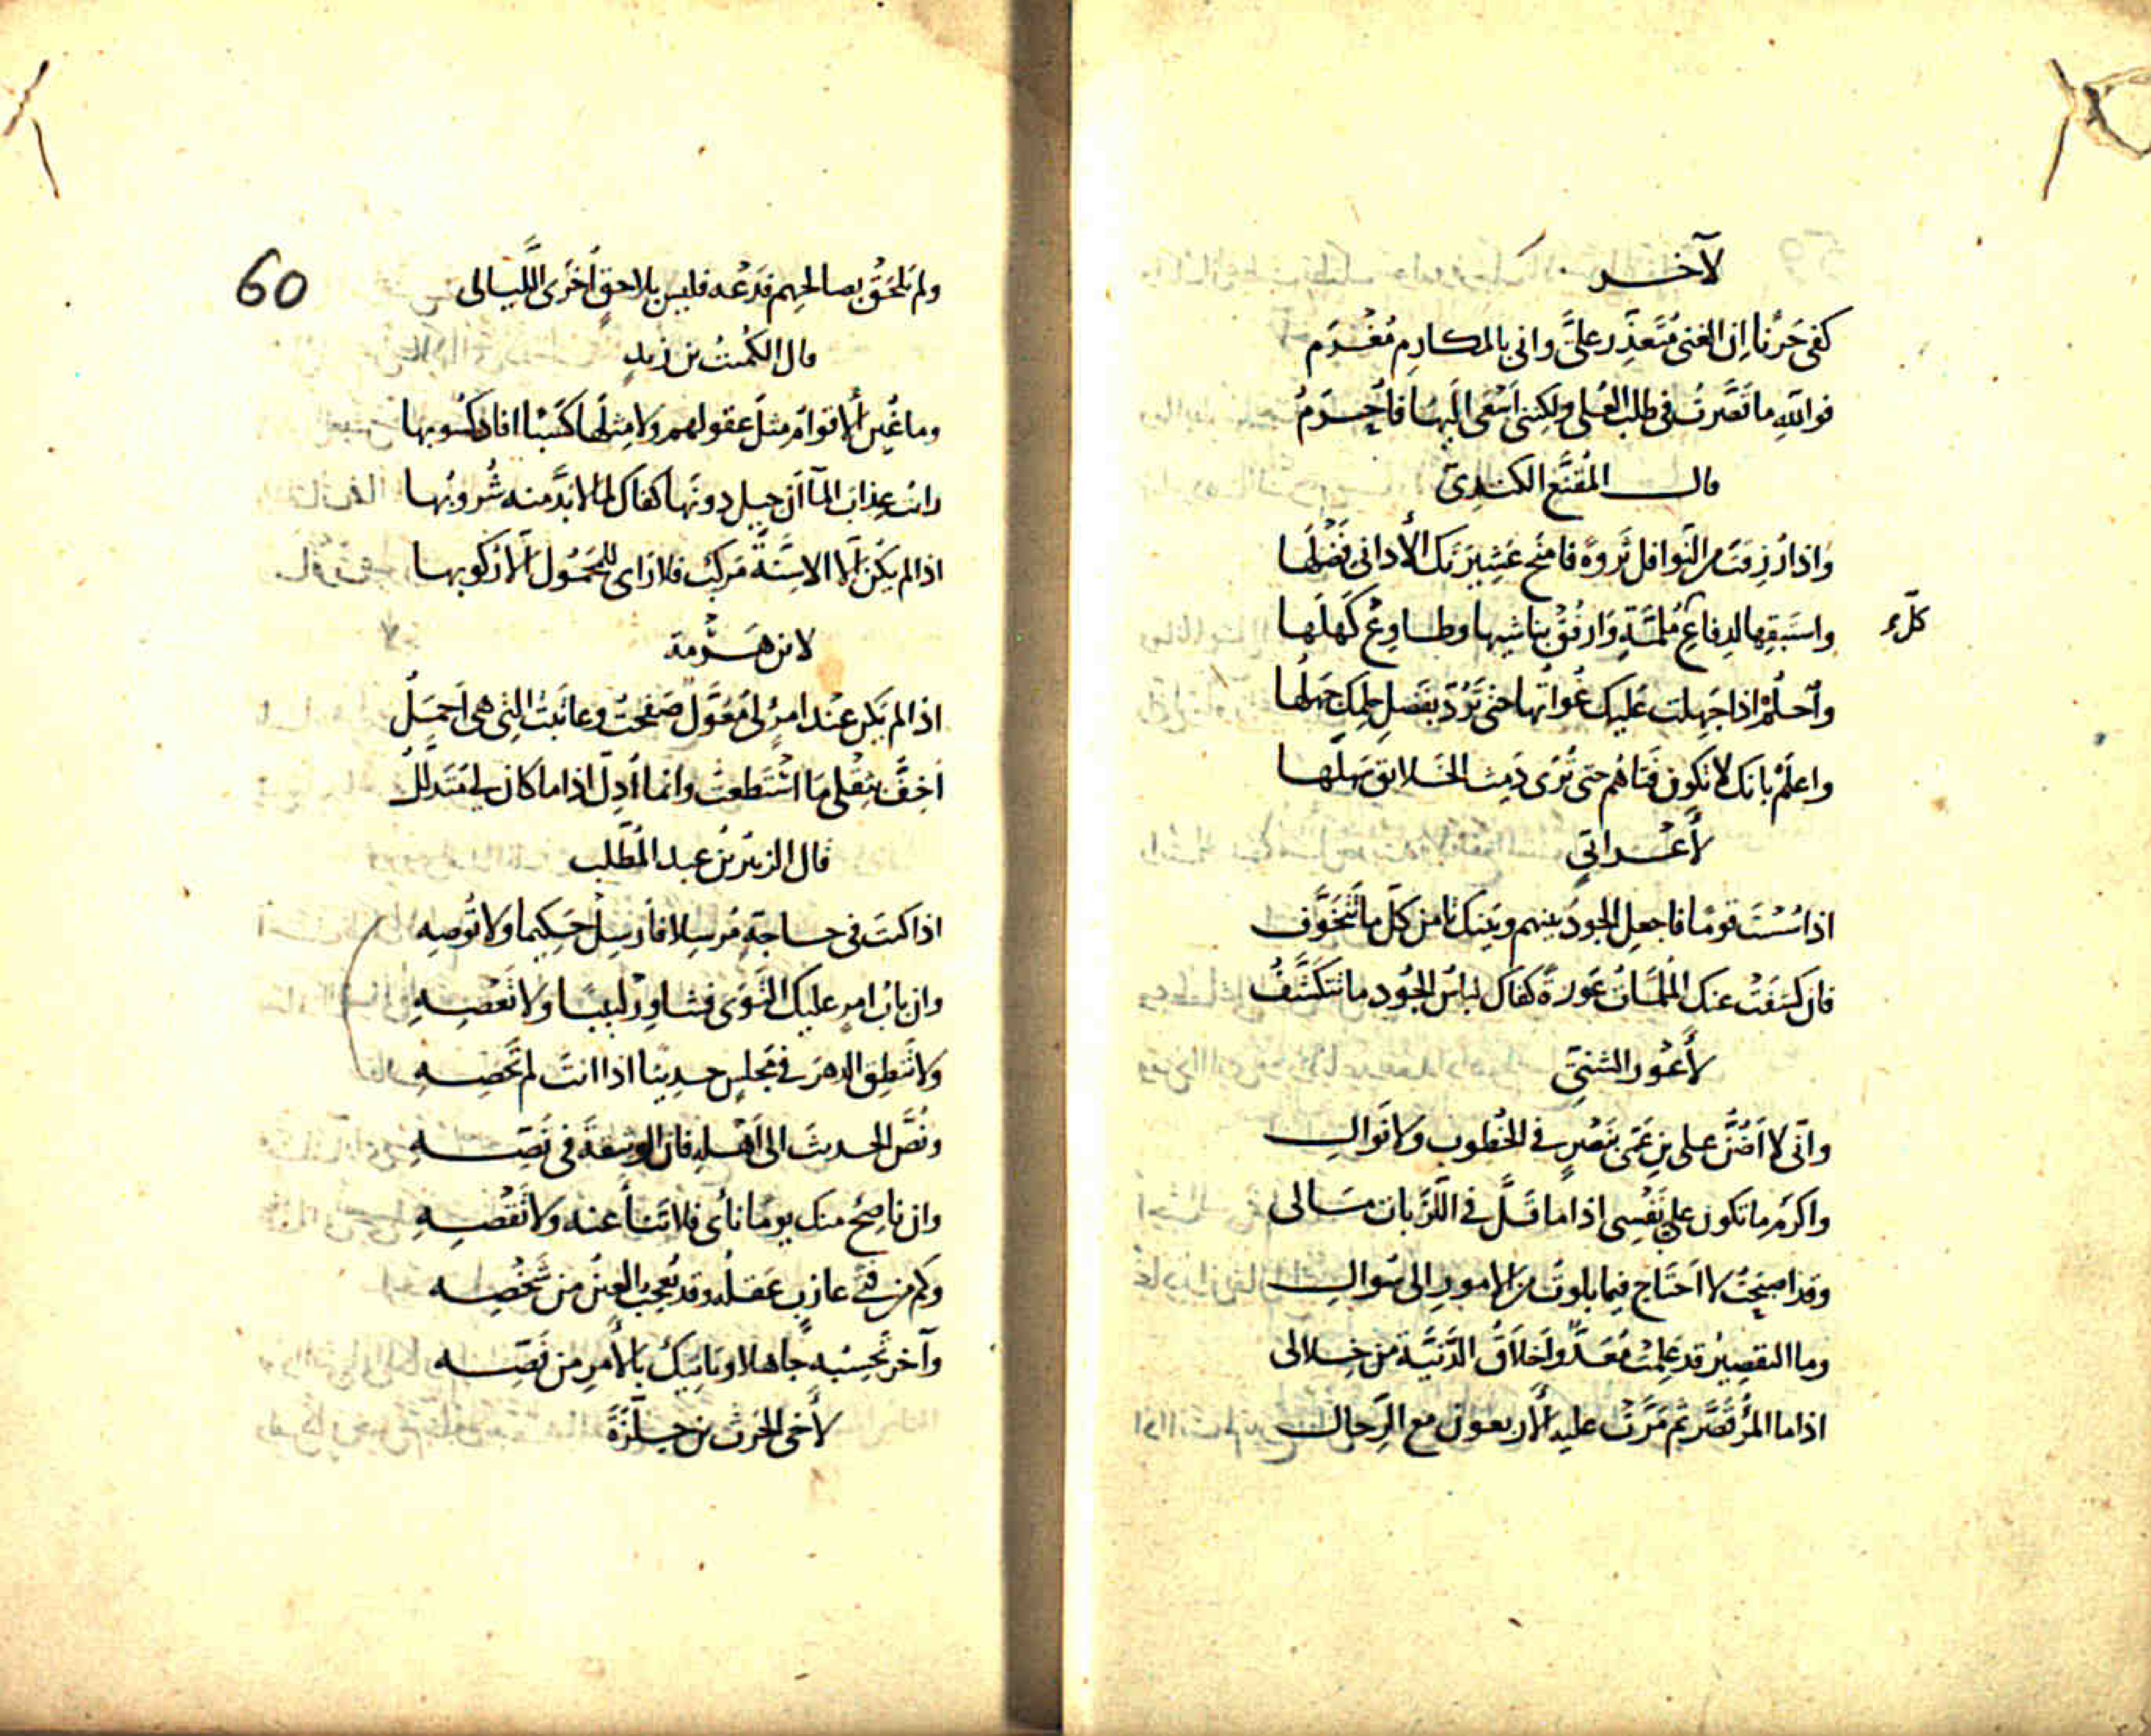 لآخر
كفى حَزَنا اِن الغنى مُتَعَذِّر علىَّ وانى بالمكارِم مُغْرَم
فواللّهِ ما قَصَّرتُ فى طلب العُلى ولكِننى اَسْعَى اليها فاُحرَمُ
قال المُقَنَّع الكندِىّ
واذا رُزِقتَ من النّوافل ثَروةً فامنَح عَشِيرَتَك الأدانى فَضْلَها
واستَبقِها لدِفاعِ مُلمّةٍ وَارفُقْ بناشِيها وطاوِعْ كَهلَها
كلّ
واُحلُمْ اذا جَهِلت عَليك غُواتها حتى تَرُدّ بفَضلِ حِلمِك جَهلَها
واعلَمْ بانك لا تكون فَتاهُم حتى تُرَى دَمِث الخلائق سَهلَها
لأعْرابىّ
اذا سُسْتَ قومًا فاجعلِ الجودَ بينهم وبينك تامن كلّ ما تتَخَوَّف
فان كشفَتْ عنك المُلمّاتُ عَورةً كفاك لباسُ الجُود ما تتكَشَّفُ
لأعْوَر الشنىّ
وانّى لا اَضُنّ على بنِ عَمّى بنَصْرِى فى الخُطوب ولا نَوالى
واكرَمُ ما تكون علىّ نَفْسِى اذا ما قَلّ فى اللّزَبات مَالى
وقد اصبَحْتُ لا اَحتَاج فيما بلوتُ من الامورِ الى سُوالِ
وما التقصِيرُ قد عَلِمْت مَعَدٌّ واَخلاقُ الدَّنيّة من خِلالى
اذا ما المرُ قَصَّر ثم مَرَّتْ عليه الأربعون مع الرّجال
60
ولم تلحَقْ بصالحِهم فَدَعْه فليس بلاحقٍ اُخرَى اللّيالى
قال الكُمَيتُ بن زيد
وما غُيّب الأقوامُ مثلَ عقولهم ولا مِثلَها كَسْبًا افاد كَسُوبها
رات عِذابَ المآ ان حِيل دونَها كفاك لما لا بُدّ منه شُروبُها
اذا لم يكن اِلّا الاسِنّةُ مَركب فلا رَاى للمَحْمُول اِلّا ركوبها
لابن هَرْمة
اذا لم يَكن عند امرٍ لى مُعَوَّل صَفحتُ وعاتَبتُ التى هى اَجمَلُ
اَخِفُّ بثِقْلى مَا اسْتَطعتُ وانما اُدِلّ اذا ما كان لى مُتَدَلّلُ
قال الزبير بن عبد المُطّلب
اذا كنتَ فى حاجةٍ مُرسِلا فاَرسِلْ حَكيما ولا تُوصِهِ
وان بابُ امرٍ عليك التَوَى فشاوِرْ لبيبًا ولا تَعْصِهِ
ولا تَنطِقِ الدهرَ فى مَجلسٍ حديثا اذا انتَ لم تُحْصِهِ
ونُصّ الحديثَ الى اَهْلِه فان الوثيقةَ فى نَصّهِ
وان ناصِحٌ منك يومًا نأى فلا تَنأَ عنه ولا تُقْصِهِ
وكم من فتى عازبٍ عَقلُه وقد تُعجَبُ العينُ من شَخْصِه
وآخر تحسِبُه جَاهلا ويَاتيكُ بالأمرِ من نَصّه
لأخى الحَرث بن حِلّزَةَ